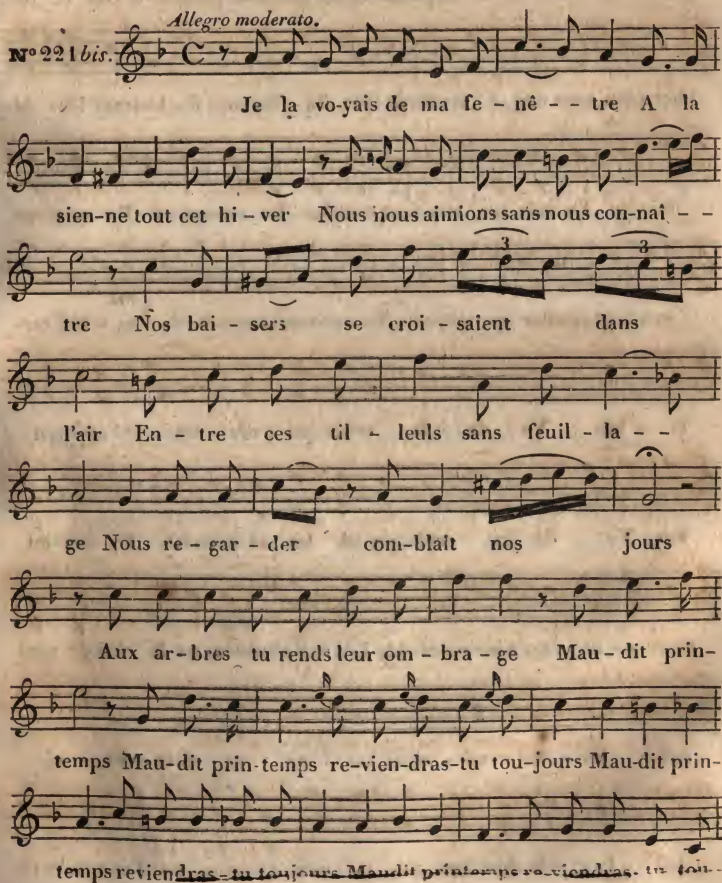 Allegro moderato.
Nº 221 bis.
Je la vo-yais de ma fe - nê - - tre A la
sien-ne tout cet hi - ver Nous nous aimions sans nous con-naî - -
3 3
tre Nos bai - sers se croi - saient dans
l'air En - tre ces til - leuls sans feuil - la - -
ge Nous re - gar - der com-blait nos jours
Aux ar-bres tu rends leur om - bra - ge Mau - dit prin-
temps Mau-dit prin-temps re-vien-dras-tu tou-jours Mau-dit prin-
temps reviendras-tu toujours Maudit printemps re-viendras- tu tou-